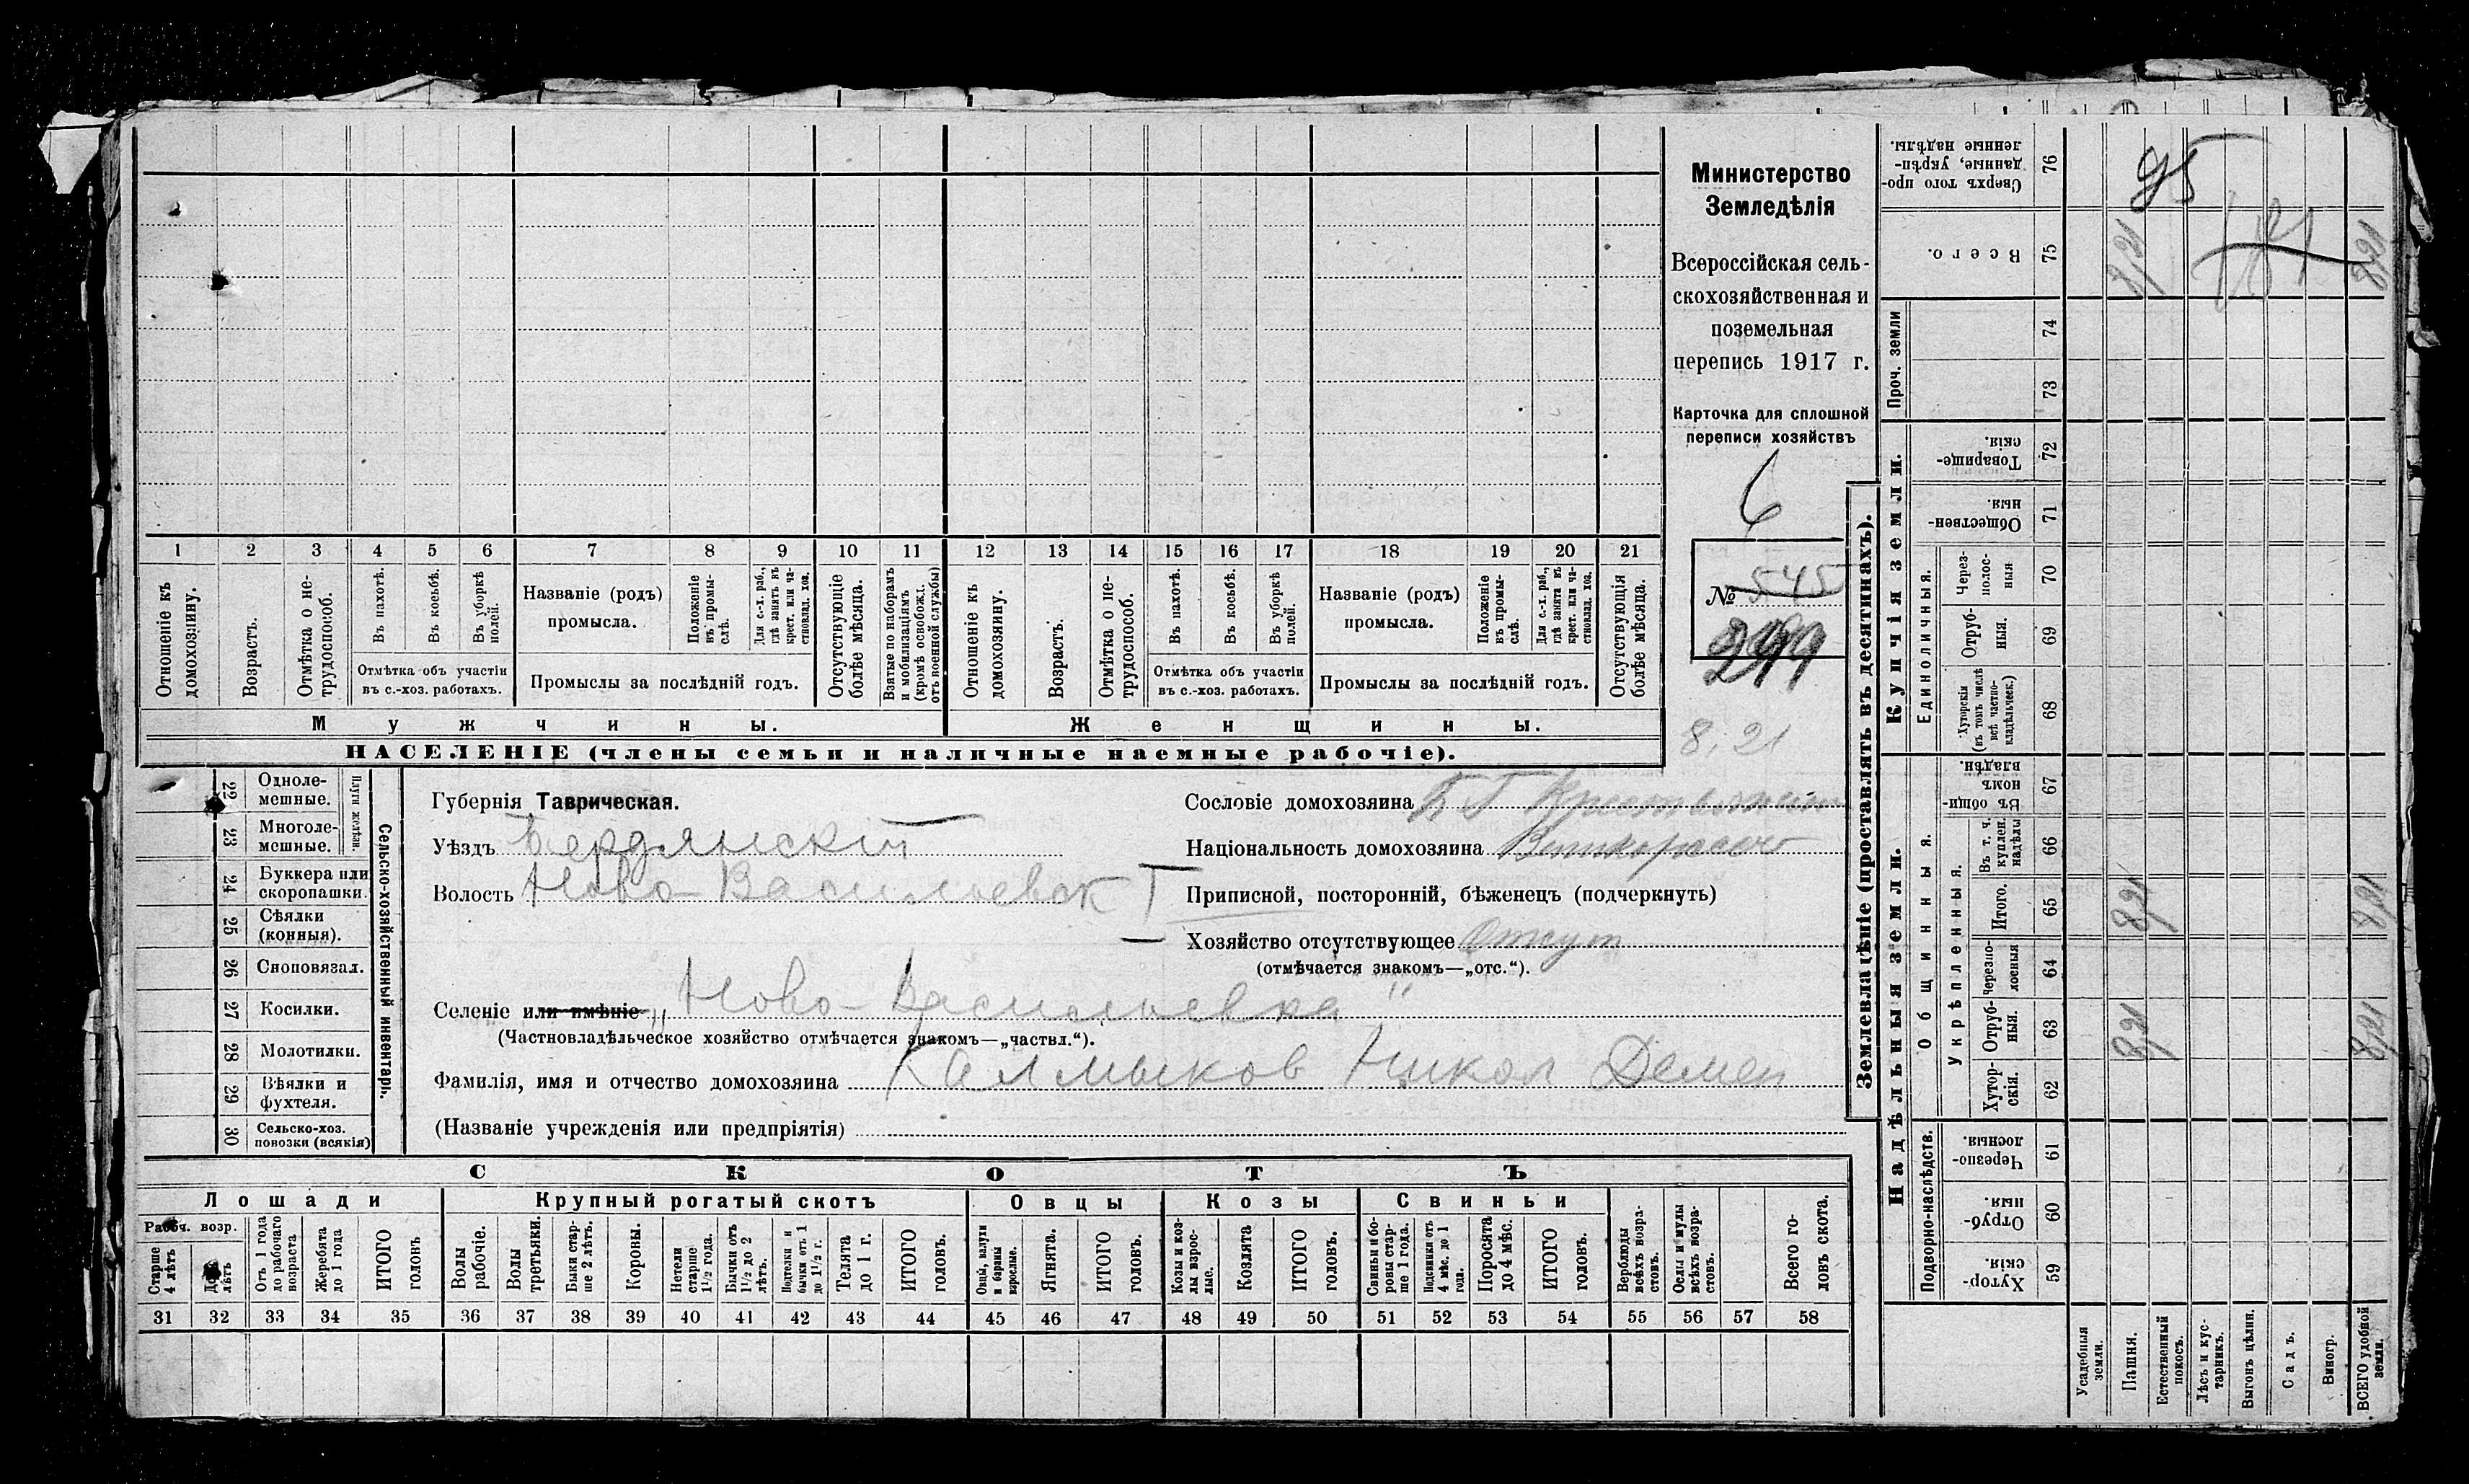 Министерство
Земледѣлія
Всероссійская сель-
скохозяйственная и
поземельная
перепись 1917 г.
Карточка для сплошной
переписи хозяйствъ
6
№ 545
8,21
1 2 3 4 5 6 7 8 9 10 11 12 13 14 15 16 17 18 19 20 21
Отношеніе къ домохозяину.
Возрастъ.
Отмѣтка о не-трудоспособ.
Въ пахотѣ.
Въ косьбѣ.
Въ уборкѣ полей.
Отмѣтка объ участіи
въ с.-хоз. работахъ.
Названіе (родъ)
промысла.
Положеніе въ промы-слѣ.
Для с.-х. раб., гдѣ занятъ въ крест. или ча-стновлад. хоз.
Промыслы за послѣдній годъ.
Отсутствующіе болѣе мѣсяца.
Взятые по наборамъ и мобилизаціямъ (кромѣ освобожд. отъ военной службы)
Отношеніе къ домохозяину.
Возрастъ.
Отмѣтка о не-трудоспособ.
Въ пахотѣ.
Въ косьбѣ.
Въ уборкѣ полей.
Отмѣтка объ участіи
въ с.-хоз. работахъ.
Названіе (родъ)
промысла.
Положеніе въ промы-слѣ.
Для с.-х. раб., гдѣ занята въ крест. или ча-стновлад. хоз.
Промыслы за послѣдній годъ.
Отсутствующія болѣе мѣсяца.
Мужчины.
Женщины.
НАСЕЛЕНІЕ (члены семьи и наличные наемные рабочіе).
Сельско-хозяйственный инвентарь.
Плуги желѣзн.
22 Одноле-мешные.
23 Многоле-мешные.
24 Буккера или скоропашки.
25 Сѣялки (конныя).
26 Сноповязал.
27 Косилки.
28 Молотилки.
29 Вѣялки и фухтеля.
30 Сельско-хоз. повозки (всякія)
Губернія Таврическая.
Уѣздъ Бердянскій
Волость Ново-Васильевск
Сословіе домохозяина
Національность домохозяина Великороссъ
Приписной, посторонній, бѣженецъ (подчеркнуть)
Хозяйство отсутствующее Отсут
(отмѣчается знакомъ—„отс.“).
Селеніе или имѣніе „Ново-Васильевка“
(Частновладѣльческое хозяйство отмѣчается знакомъ—„частвл.“).
Фамилія, имя и отчество домохозяина Калмыков Никол Демен
(Названіе учрежденія или предпріятія)
СКОТЪ
Лошади
Крупный рогатый скотъ
Овцы
Козы
Свиньи
Рабоч. возр.
Старше 4 лѣтъ
До лѣтъ
Отъ 1 года до рабочаго возраста
Жеребята до 1 года
ИТОГО головъ
Волы рабочіе.
Волы третьяки.
Быки стар-ше 2 лѣтъ.
Коровы.
Нетели старше 1½ года.
Бычки отъ 1½ до 2 лѣтъ.
Подтелки и бычки отъ 1 до 1½ г.
Телята до 1 г.
ИТОГО головъ.
Овцы, валухи и бараны взрослые.
Ягнята.
ИТОГО головъ.
Козы и коз-лы взрос-лые.
Козлята
ИТОГО головъ.
Свиньи и бо-ровы стар-ше 1 года.
Подсвинки отъ 4 мѣс. до 1 года.
Поросята до 4 мѣс.
ИТОГО головъ.
Верблюды всѣхъ возра-стовъ.
Ослы и мулы всѣхъ возра-стовъ.
Всего го-ловъ скота.
31 32 33 34 35 36 37 38 39 40 41 42 43 44 45 46 47 48 49 50 51 52 53 54 55 56 57 58
Землевладѣніе (проставлять въ десятинахъ).
Купчія земли.
Надѣльныя земли.
Проч. земли
Единоличныя.
Общинныя.
Укрѣпленныя.
Подворно-наслѣдств.
76 Сверхъ того про-данные, укрѣп-ленные надѣлы.
95
75 Всего. 8,21 8,21
181
74
73
72 Товарище-скія.
71 Обществен-ныя
70 Черезполос-ныя
69 Отруб-ныя.
68 Хуторскія (въ томъ числѣ всѣ частно-владѣльческ.)
67 Въ общин-номъ владѣн.
66 Въ т. ч. куплен. надѣлы
65 Итого. 8,21 8,21
64 Черезпо-лосныя
63 Отруб-ныя. 8,21 8,21
62 Хутор-скія.
61 Черезпо-лосныя.
60 Отруб-ныя.
59 Хутор-скія.
Усадебныя земли.
Пашня.
Естественный покосъ.
Лѣсъ и кус-тарникъ.
Выгонъ цѣлин.
Садъ.
Виногр.
ВСЕГО удобной земли.